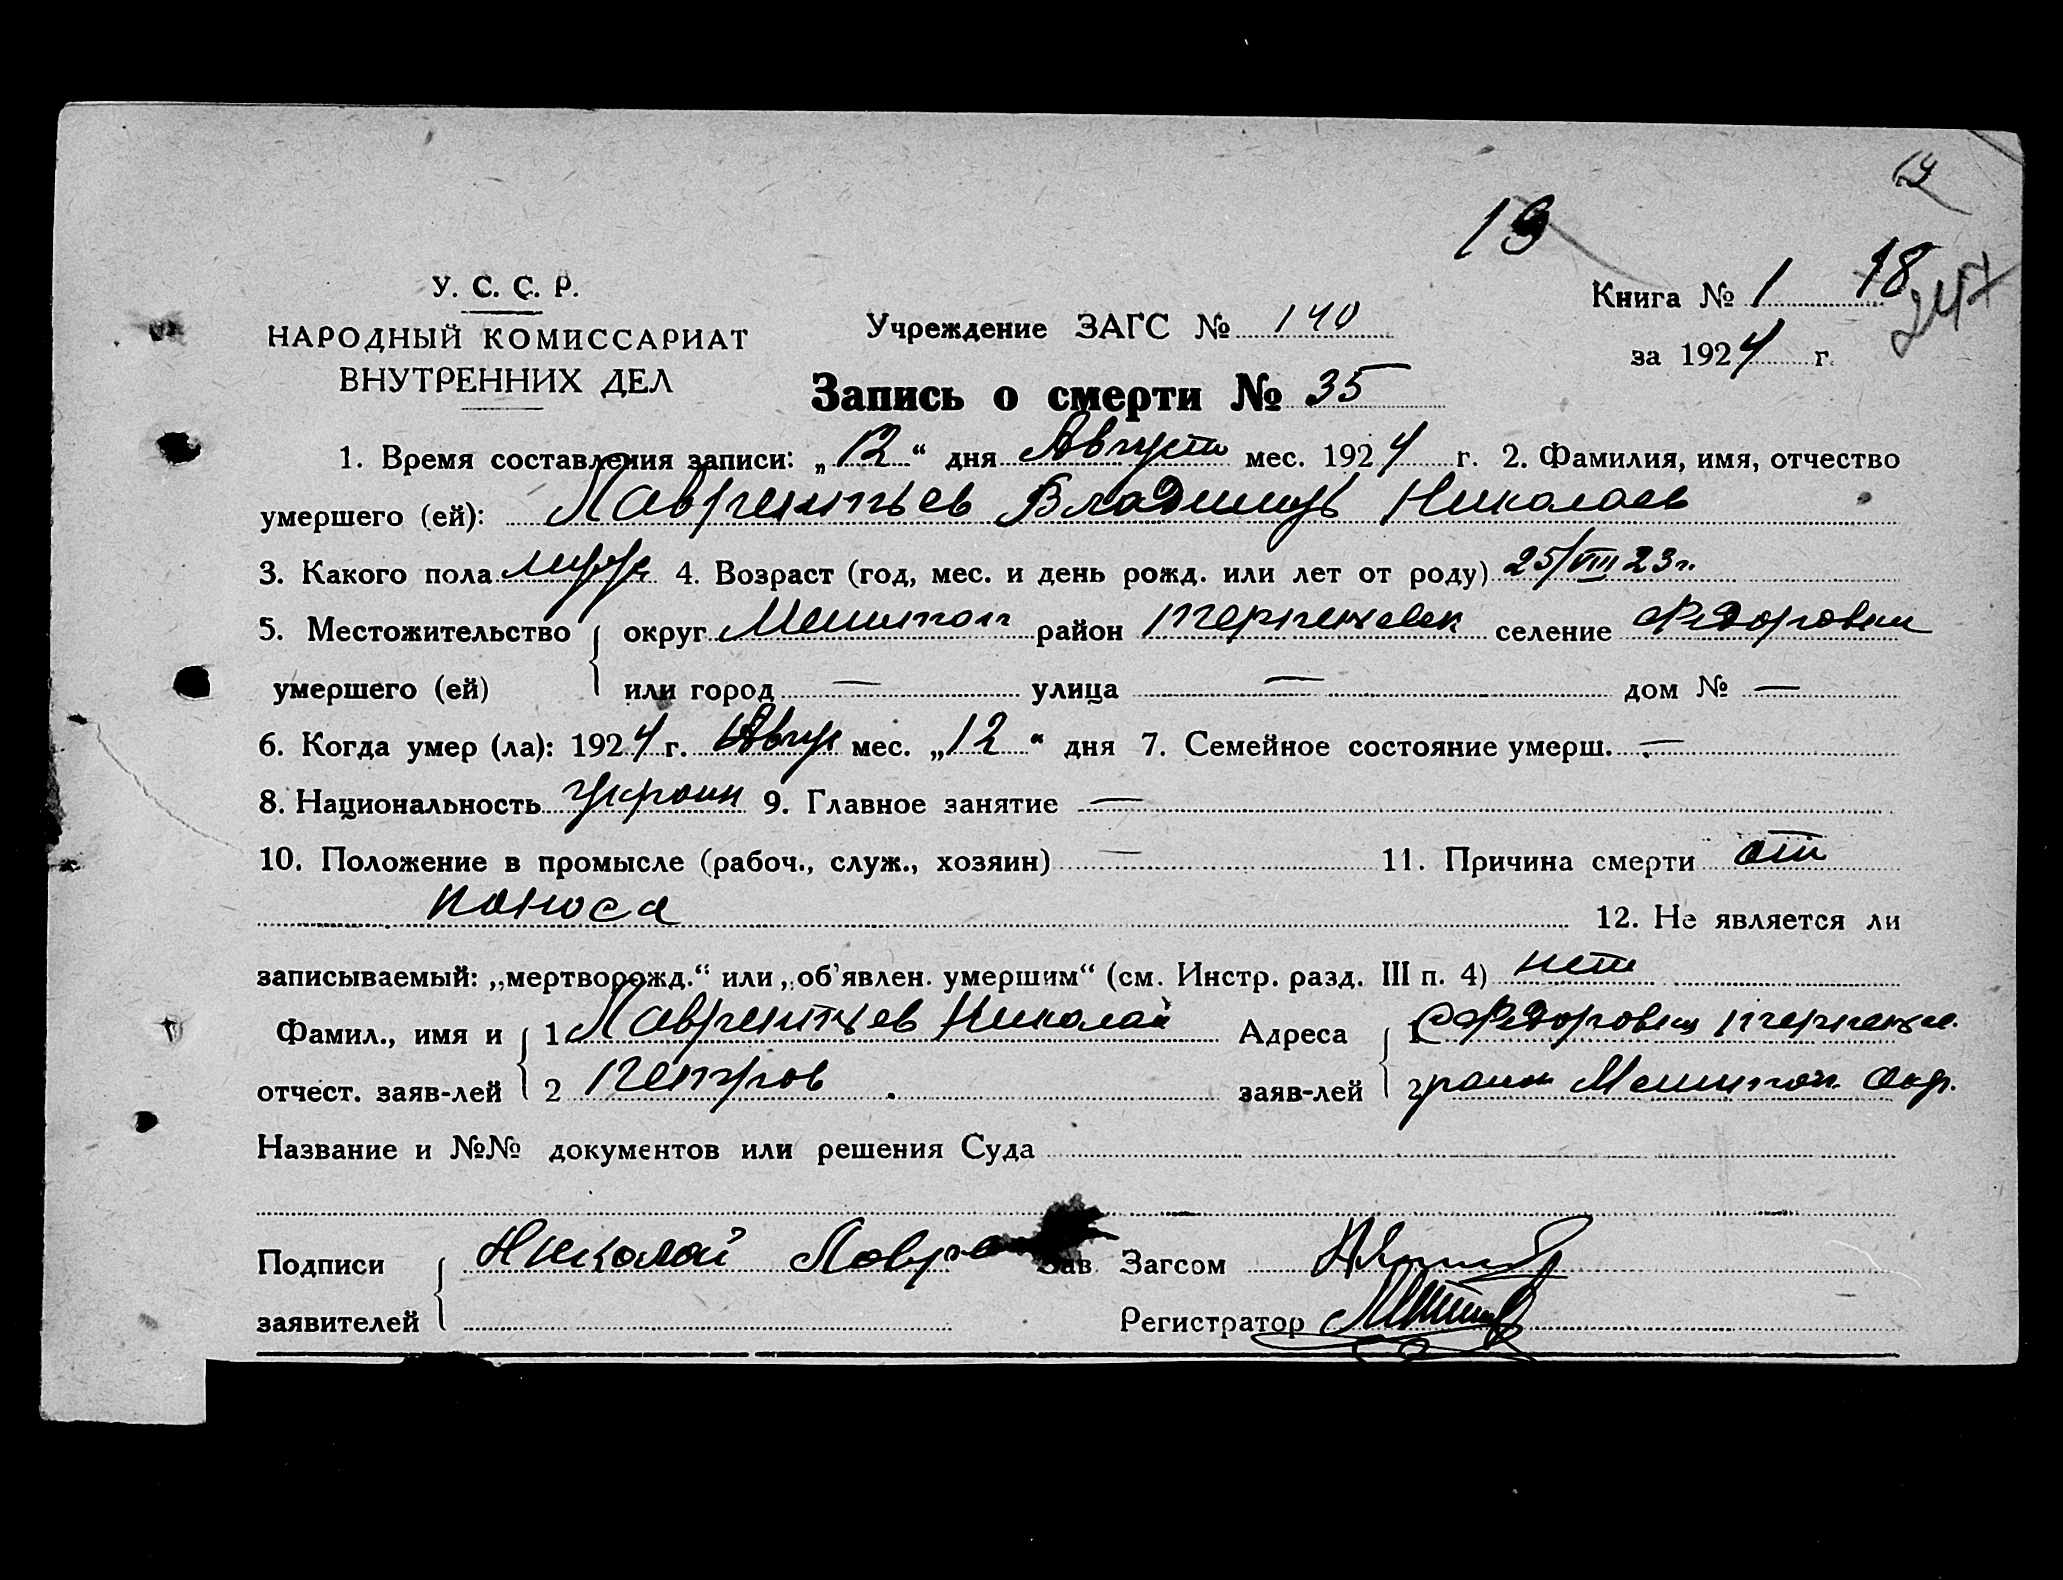 19
19
У. С. С. Р.
НАРОДНЫЙ КОМИССАРИАТ
ВНУТРЕННИХ ДЕЛ
Учреждение ЗАГС № 140
Книга № 1 18
247
за 1924 г.
Запись о смерти № 35
1. Время составления записи: „12“ дня Август мес. 1924 г. 2. Фамилия, имя, отчество
умершего (ей): Лаврентьев Владимир Николаев
3. Какого пола муж 4. Возраст (год, мес. и день рожд. или лет от роду) 25/VIII 23 г.
5. Местожительство округ Мелитоп район Терпеневск селение Федоровки
умершего (ей) или город — улица — дом № —
6. Когда умер (ла): 1924 г. Авгус мес. „12“ дня 7. Семейное состояние умерш. —
8. Национальность Украин 9. Главное занятие —
10. Положение в промысле (рабоч., служ., хозяин) — 11. Причина смерти от
поноса 12. Не является ли
записываемый: „мертворожд.“ или „об’явлен. умершим“ (см. Инстр. разд. III п. 4) нет
Фамил., имя и 1 Лаврентьев Николай Адреса 1 С Федоровки
отчест. заяв-лей 2 Петров заяв-лей 2 район Мелитоп. Окр.
Название и №№ документов или решения Суда
Подписи Николай Лавре Зав Загсом
заявителей Регистратор